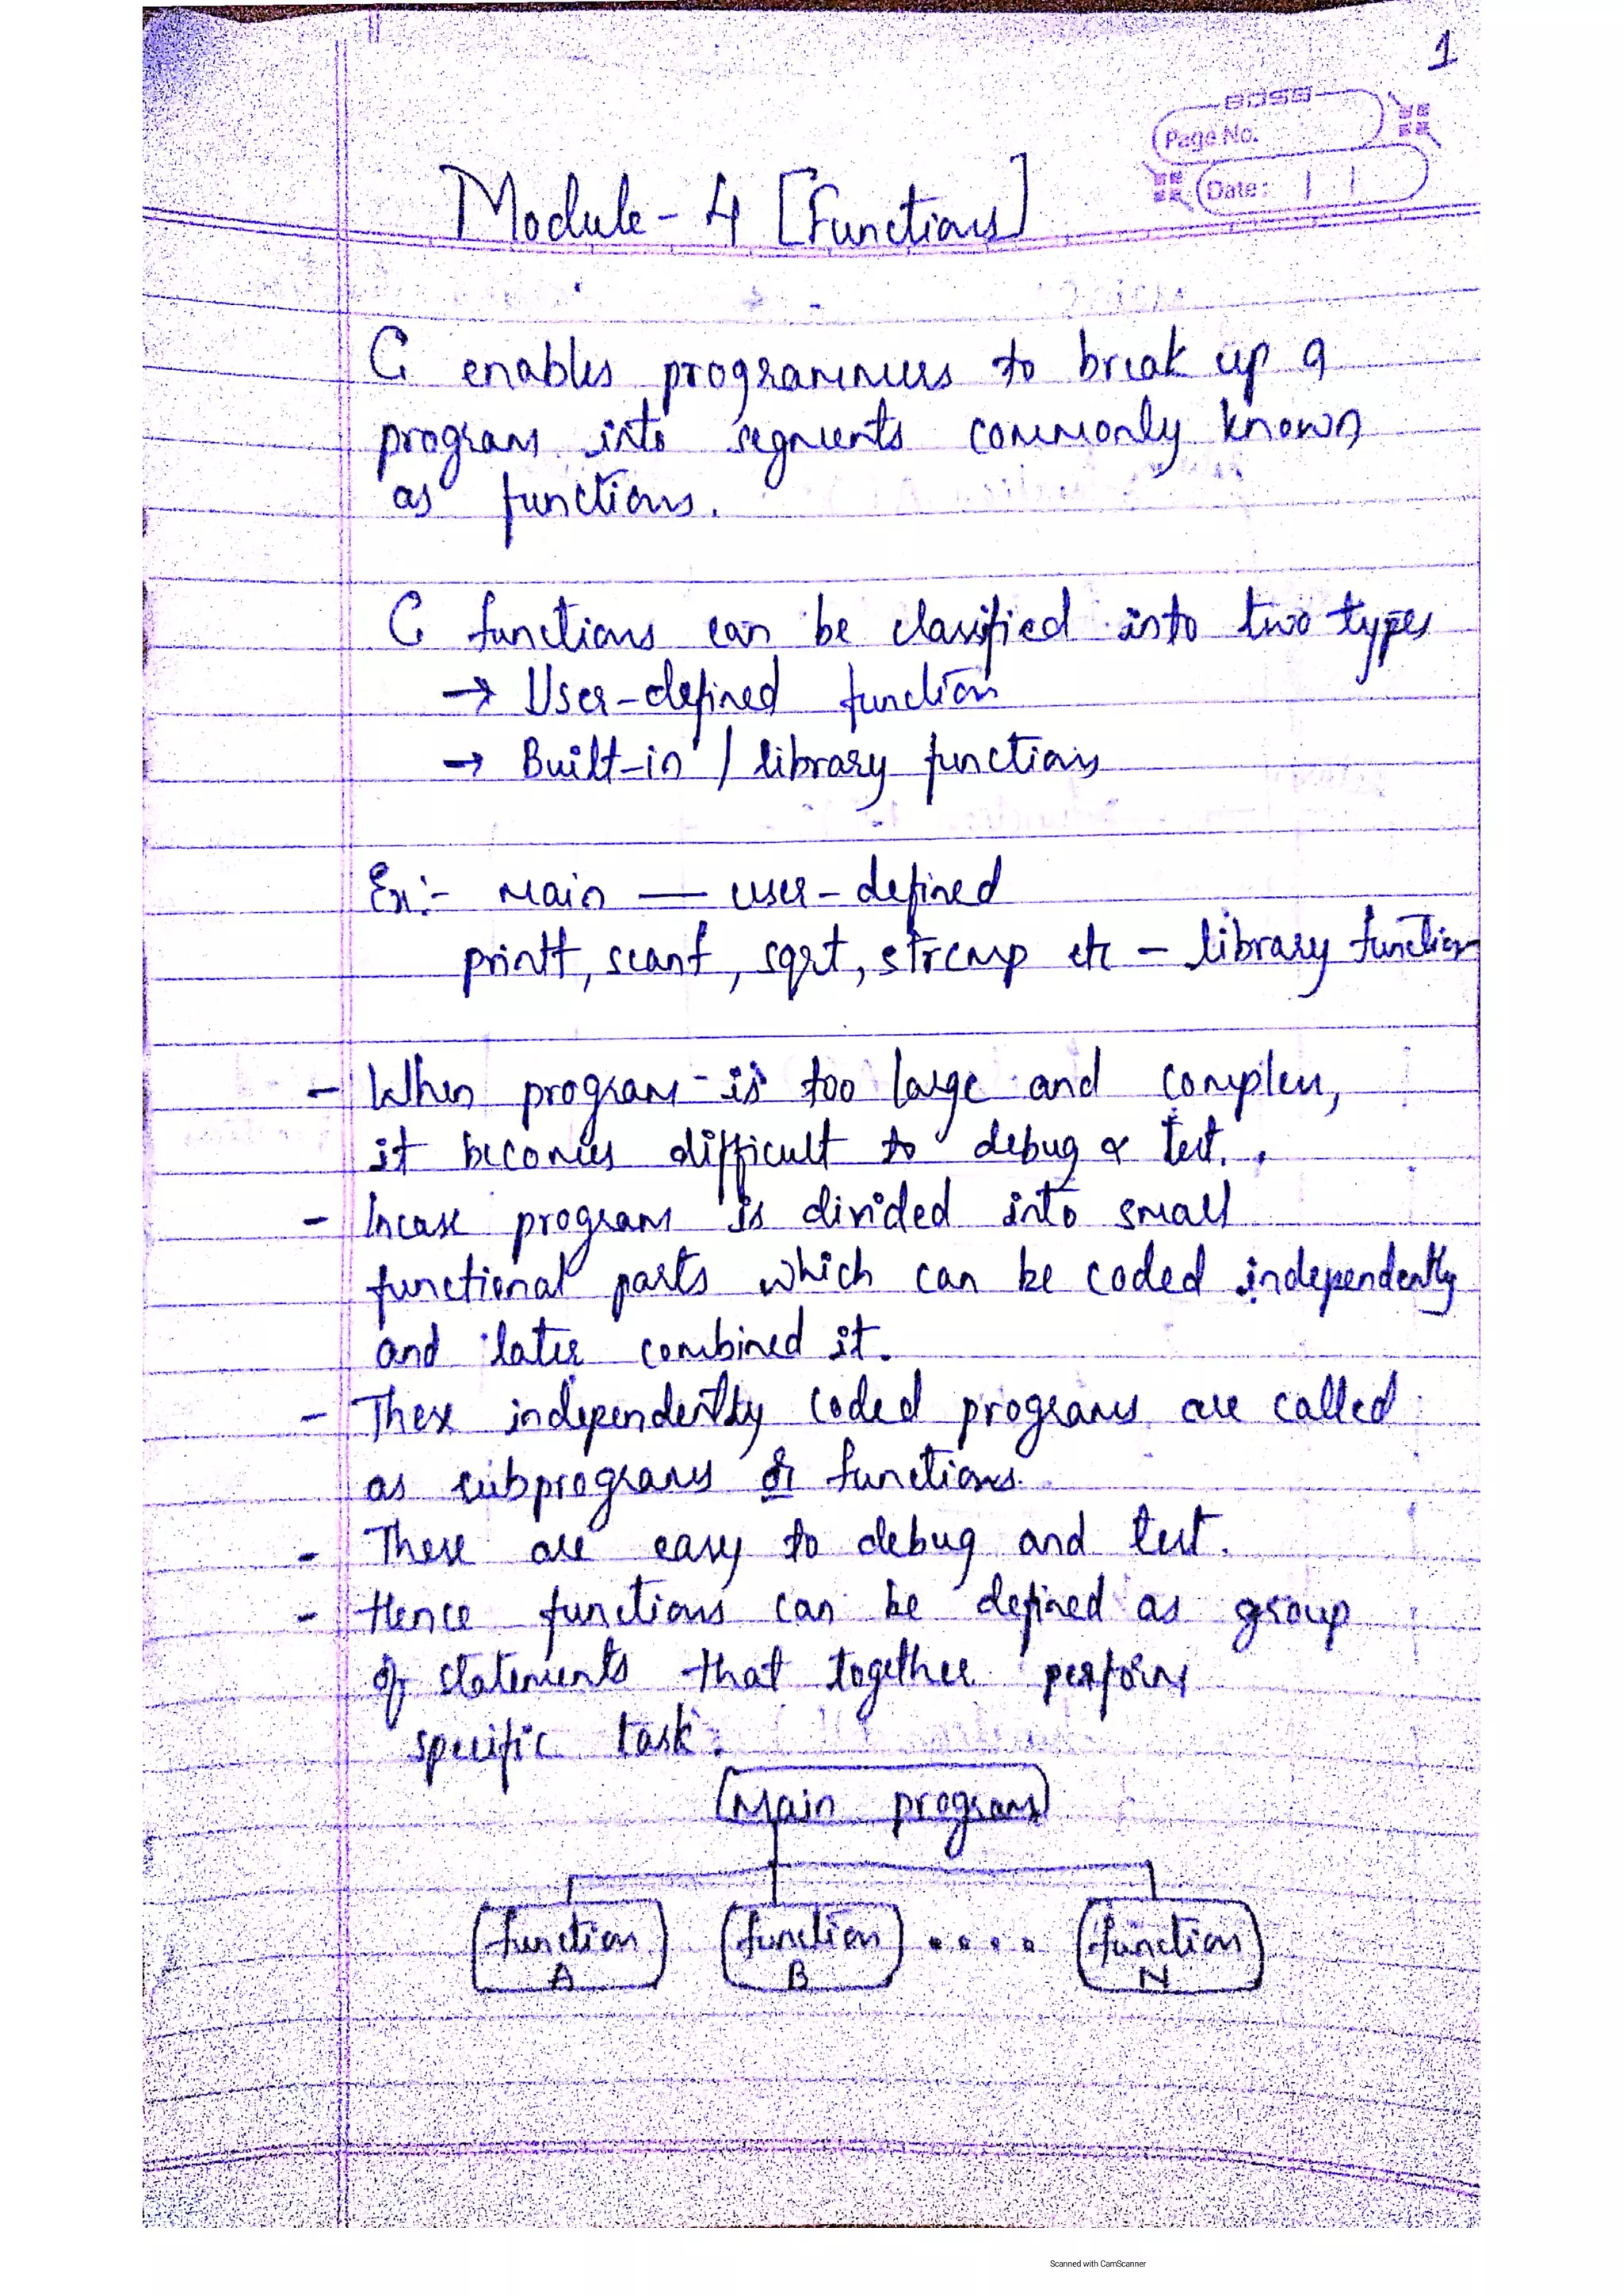 1
BOSS
Page No.
Date: / /
Module - 4 [Functions]
C enables programmers to break up a
program into segments commonly known
as functions.
C functions can be classified into two types
→ User-defined function
→ Built-in / library functions
Ex:- main — user-defined
printf, scanf, sqrt, strcmp etc - library function
- When program is too large and complex,
it becomes difficult to debug & test.
- Incase program is divided into small
functional parts which can be coded independently
and later combined it.
- These independently coded programs are called
as subprograms or functions.
- These are easy to debug and test.
- Hence functions can be defined as group
of statements that together perform
specific task.
Main program
function A function B .... function N
Scanned with CamScanner